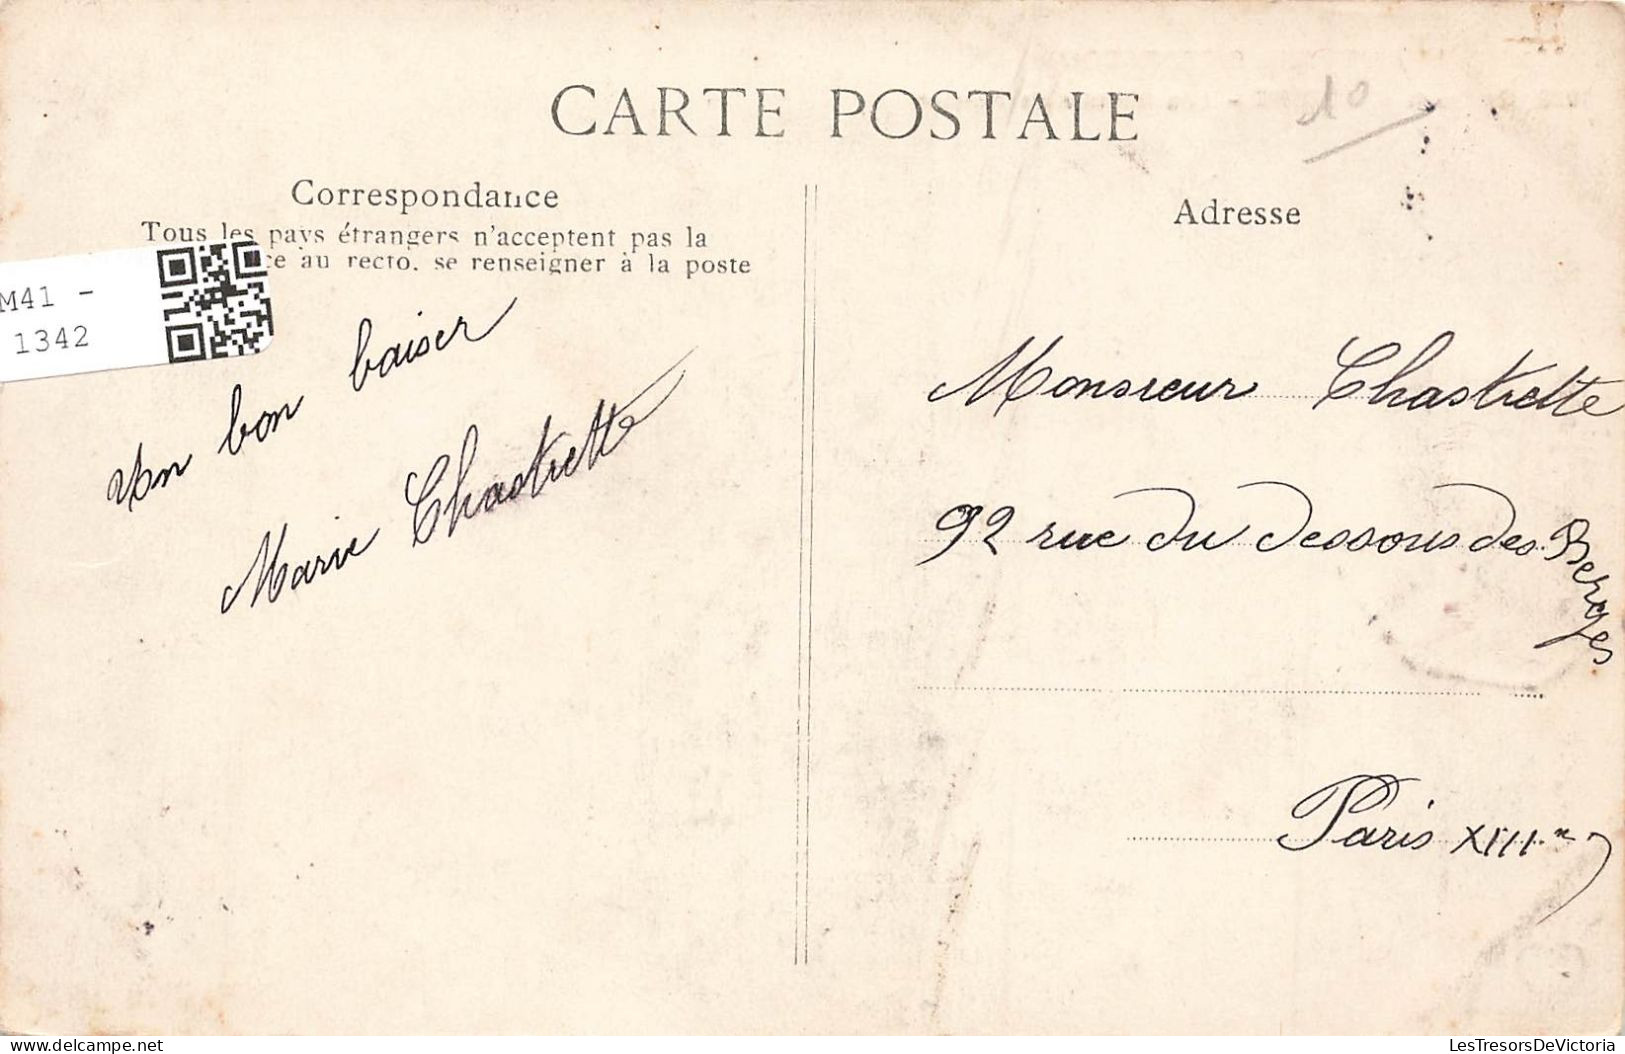 CARTE POSTALE
10
Correspondance
Tous les pays étrangers n'acceptent pas la
ce au recto. se renseigner à la poste
M41 -
1342
Un bon baiser
Marie Chastrette
Adresse
Monsieur Chastrette
92 rue du Dessous des Berges
Paris XIII
LesTresorsDeVictoria